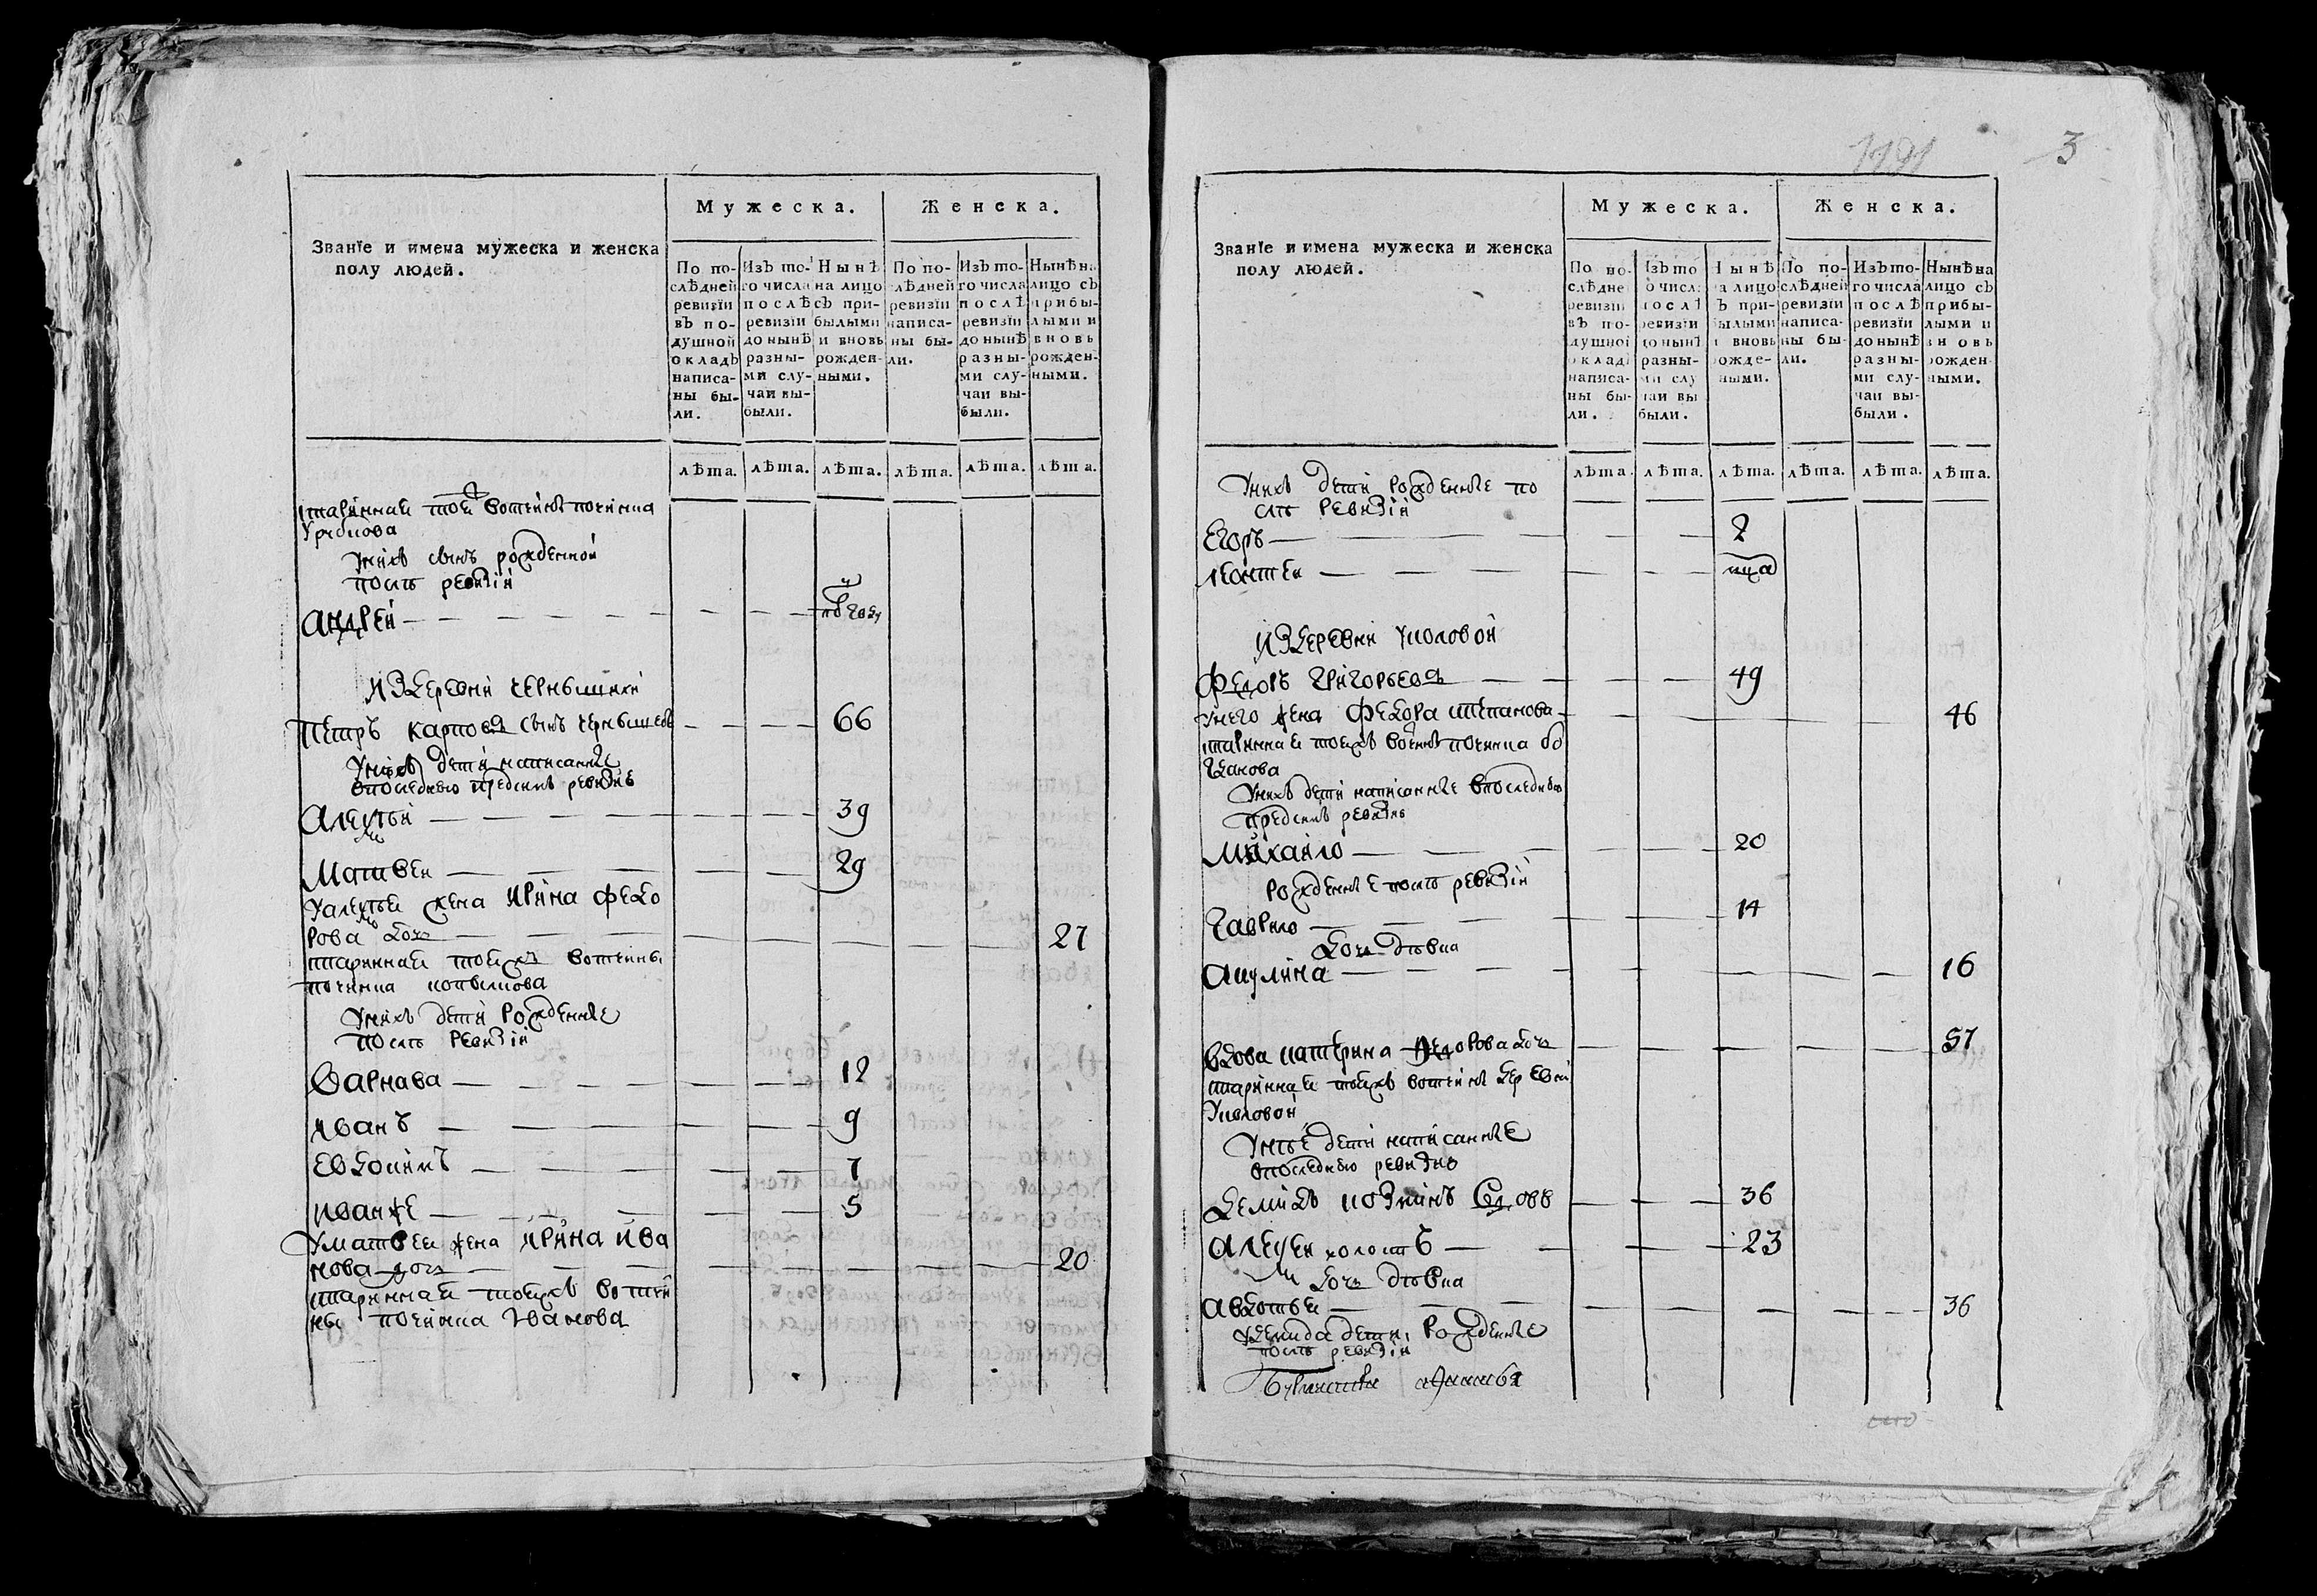 Мужеска.
Женска.
Званїе и имена мужеска и женска
полу людей.
По по-
слѣдней
ревизїи
въ по-
душной
окладъ
написа-
ны бы-
ли.
Изъ то-
го числа
послѣ
ревизїи
до нынѣ
разны-
ми слу-
чаи вы-
были.
Нынѣ
на лицо
съ при-
былыми
и вновь
рожден-
ными.
По по-
слѣдней
ревизїи
написа-
ны бы-
ли.
Изъ то-
го числа
послѣ
ревизїи
до нынѣ
разны-
ми слу-
чаи вы-
были.
Нынѣ на
лицо съ
прибы-
лыми и
вновь
рожден-
ными.
лѣта. лѣта. лѣта. лѣта. лѣта. лѣта.
старинная тоей вотчины починка
у них сынъ рожденной
после ревизїи
Андрей
из деревни Чернышихи
Петръ Карповъ сынъ Чернышевъ 66
у них дети написанные
в последнюю пред сим ревизию
Алексей 39
Матвей 29
у Алексея жена Ирина Федо
рова дочь 27
старинная тоей ж вотчины
починка Копылова
у них дети рожденные
после ревизїи
Варнава 12
Иванъ 9
Евдокимъ 7
Иван же 5
у Матвея жена Ирина Ива
нова дочь 20
старинная тоей ж вотчи
ны починка Иванова
1191
3
Мужеска.
Женска.
Званїе и имена мужеска и женска
полу людей.
По по-
слѣдне
ревизїи
въ по-
душной
окладъ
написа-
ны бы-
ли.
Изъ то
о числа
послѣ
ревизїи
до нынѣ
разны-
ми слу
чаи вы
были.
Нынѣ
на лицо
съ при-
былыми
и вновь
рожде-
ными.
По по-
слѣдней
ревизїи
написа-
ны бы-
ли.
Изъ то-
го числа
послѣ
ревизїи
до нынѣ
разны-
ми слу-
чаи вы-
были.
Нынѣ на
лицо съ
прибы-
лыми и
вновь
рожден-
ными.
лѣта. лѣта. лѣта. лѣта. лѣта. лѣта.
у них дети рожденные по
сле ревизїи
Егоръ 2
Леонтей
из деревни Уколовой
Федоръ Григорьевъ 49
у него жена Федора Степанова 46
старинная тоей ж вотчины починка Бо
гданова
у них дети написанные в последнюю
пред сим ревизию
Михайло 20
рожденные после ревизїи
Гаврило 14
дочь девка
Акулина 16
вдова Катерина Федорова дочь 57
старинная тоей ж вотчины деревни
Уколовой
у нее дети написанные
в последнюю ревизию
Демидъ Козминъ 36
Алексей холостъ 23
дочь девка
Авдотья 36
у Демида дети рожденные
после ревизїи